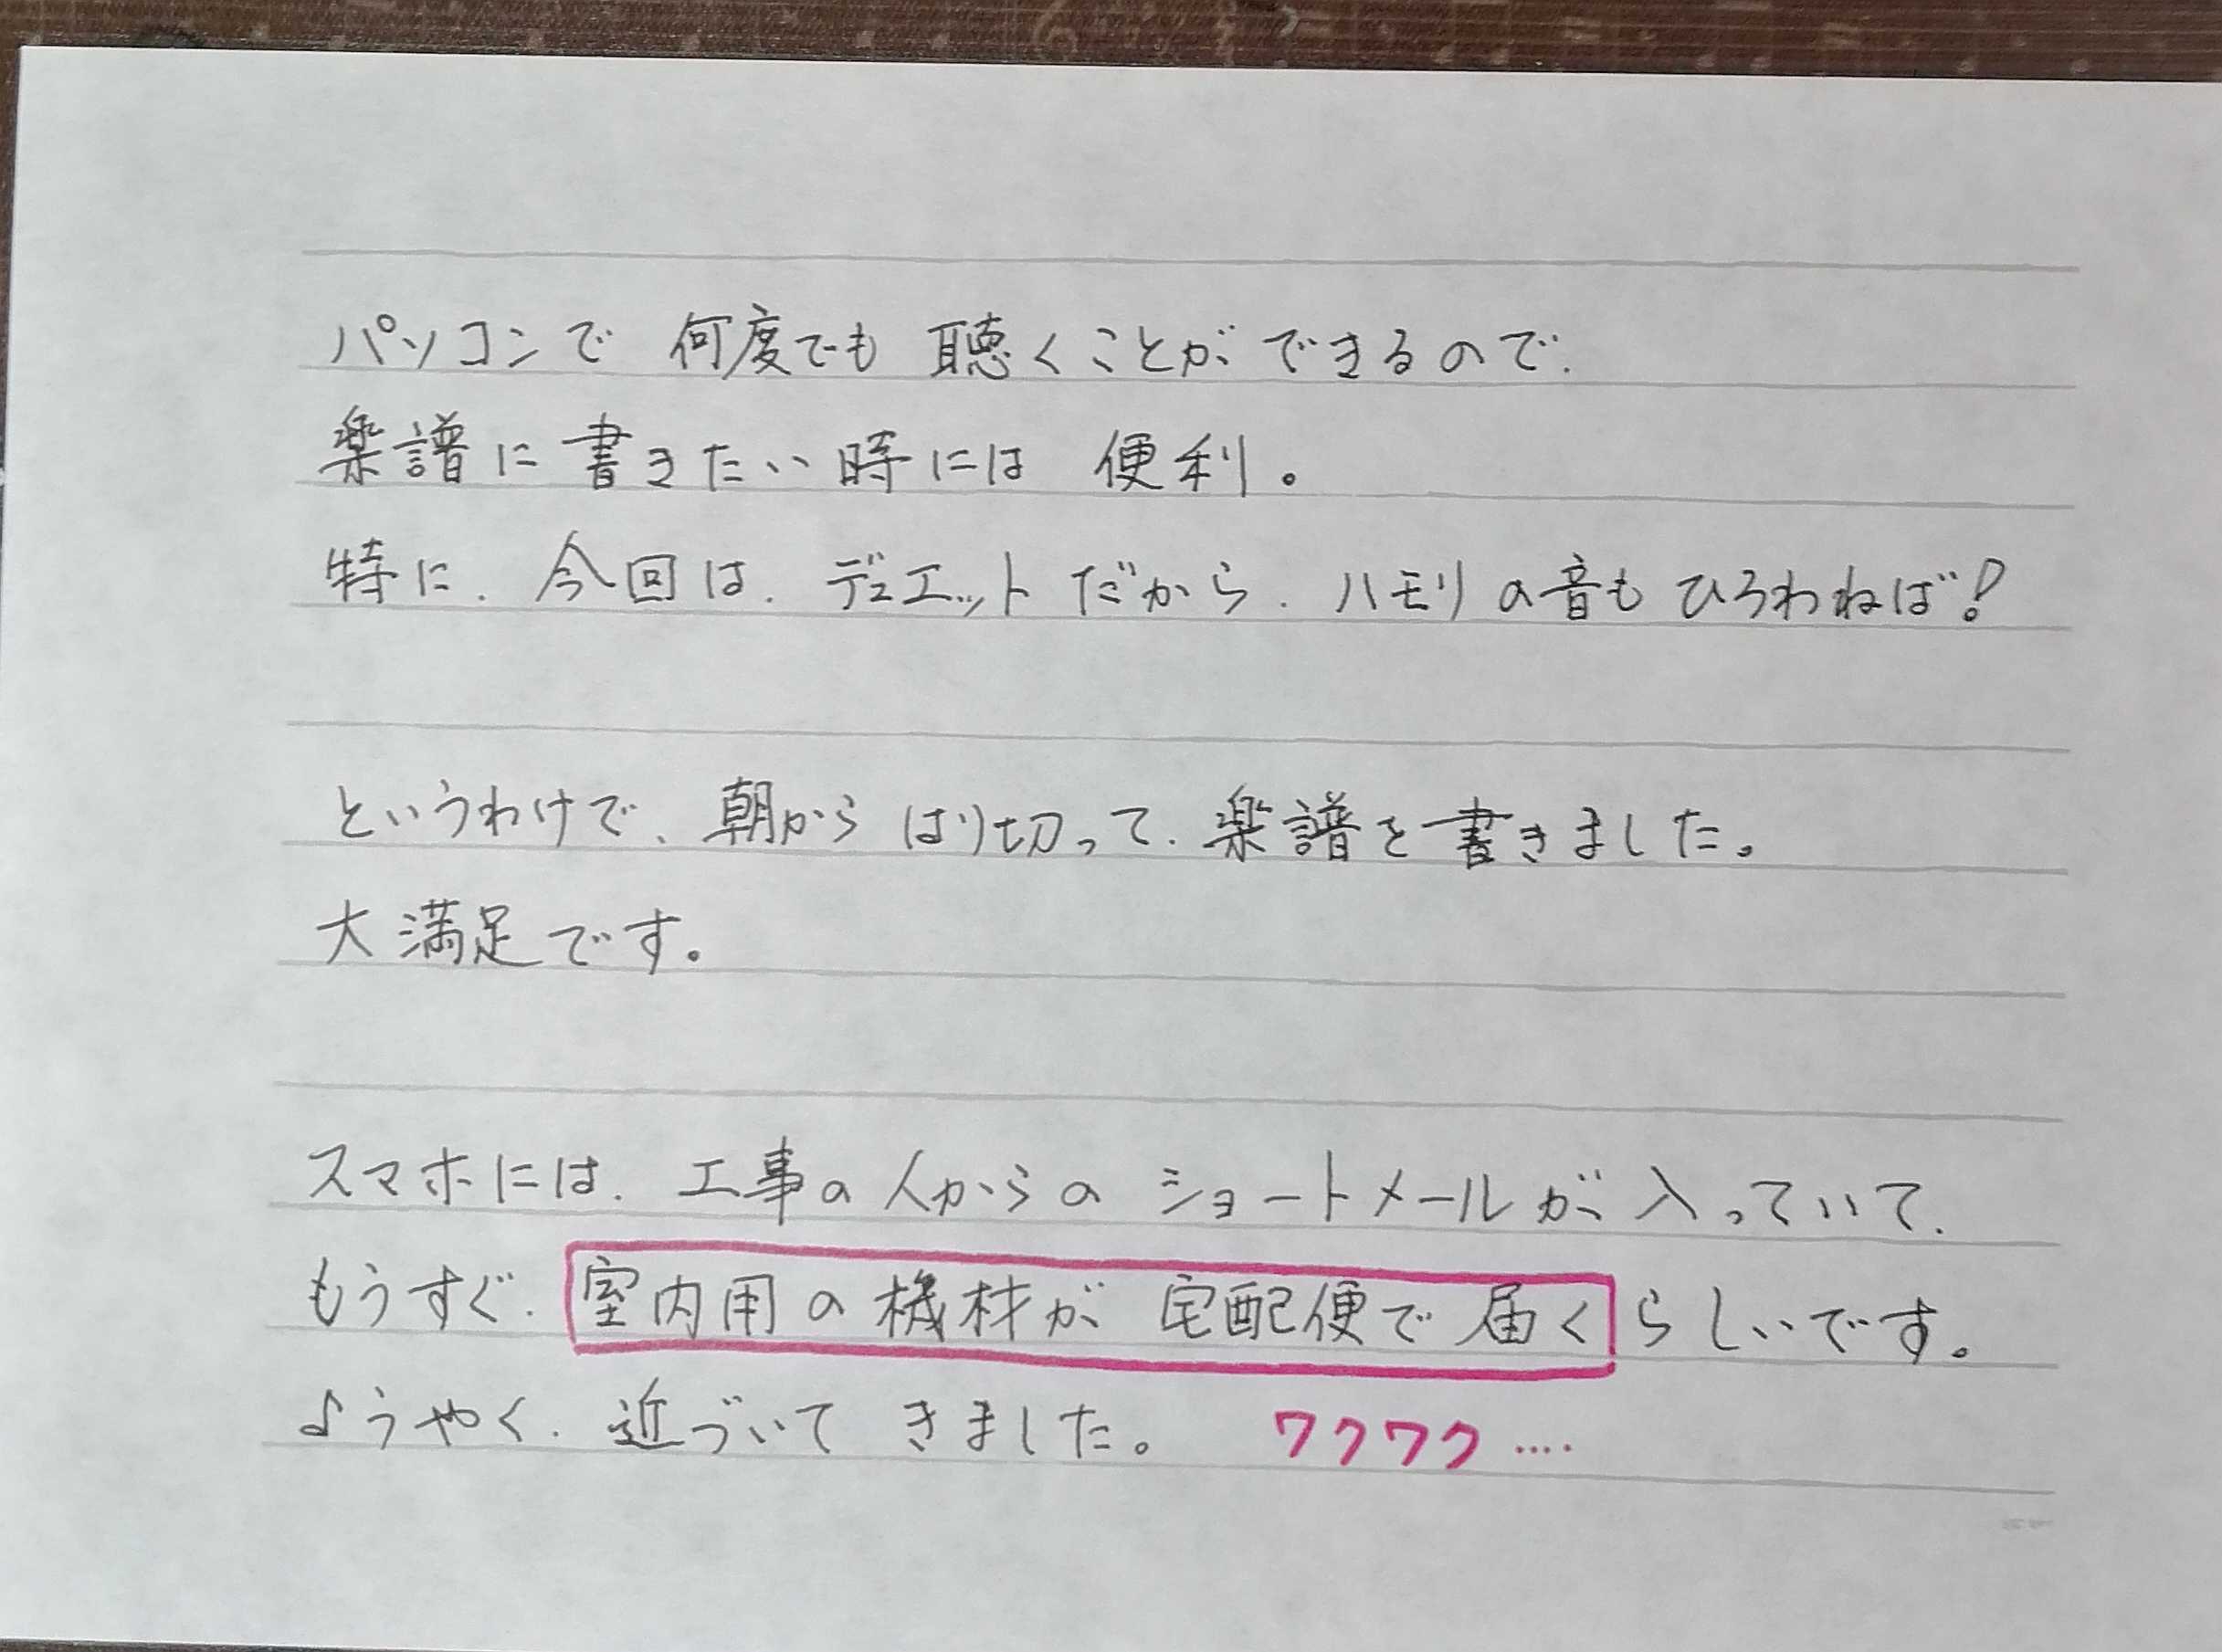 パソコンで 何度でも 聴くことができるので、
楽譜に書きたい時には 便利。
特に、今回は、デュエットだから、ハモリの音もひろわねば!
というわけで、朝から はり切って、楽譜を書きました。
大満足です。
スマホには、工事の人からの ショートメールが入っていて、
もうすぐ、室内用の機材が 宅配便で届くらしいです。
ようやく、近づいて きました。 ワクワク ‥‥